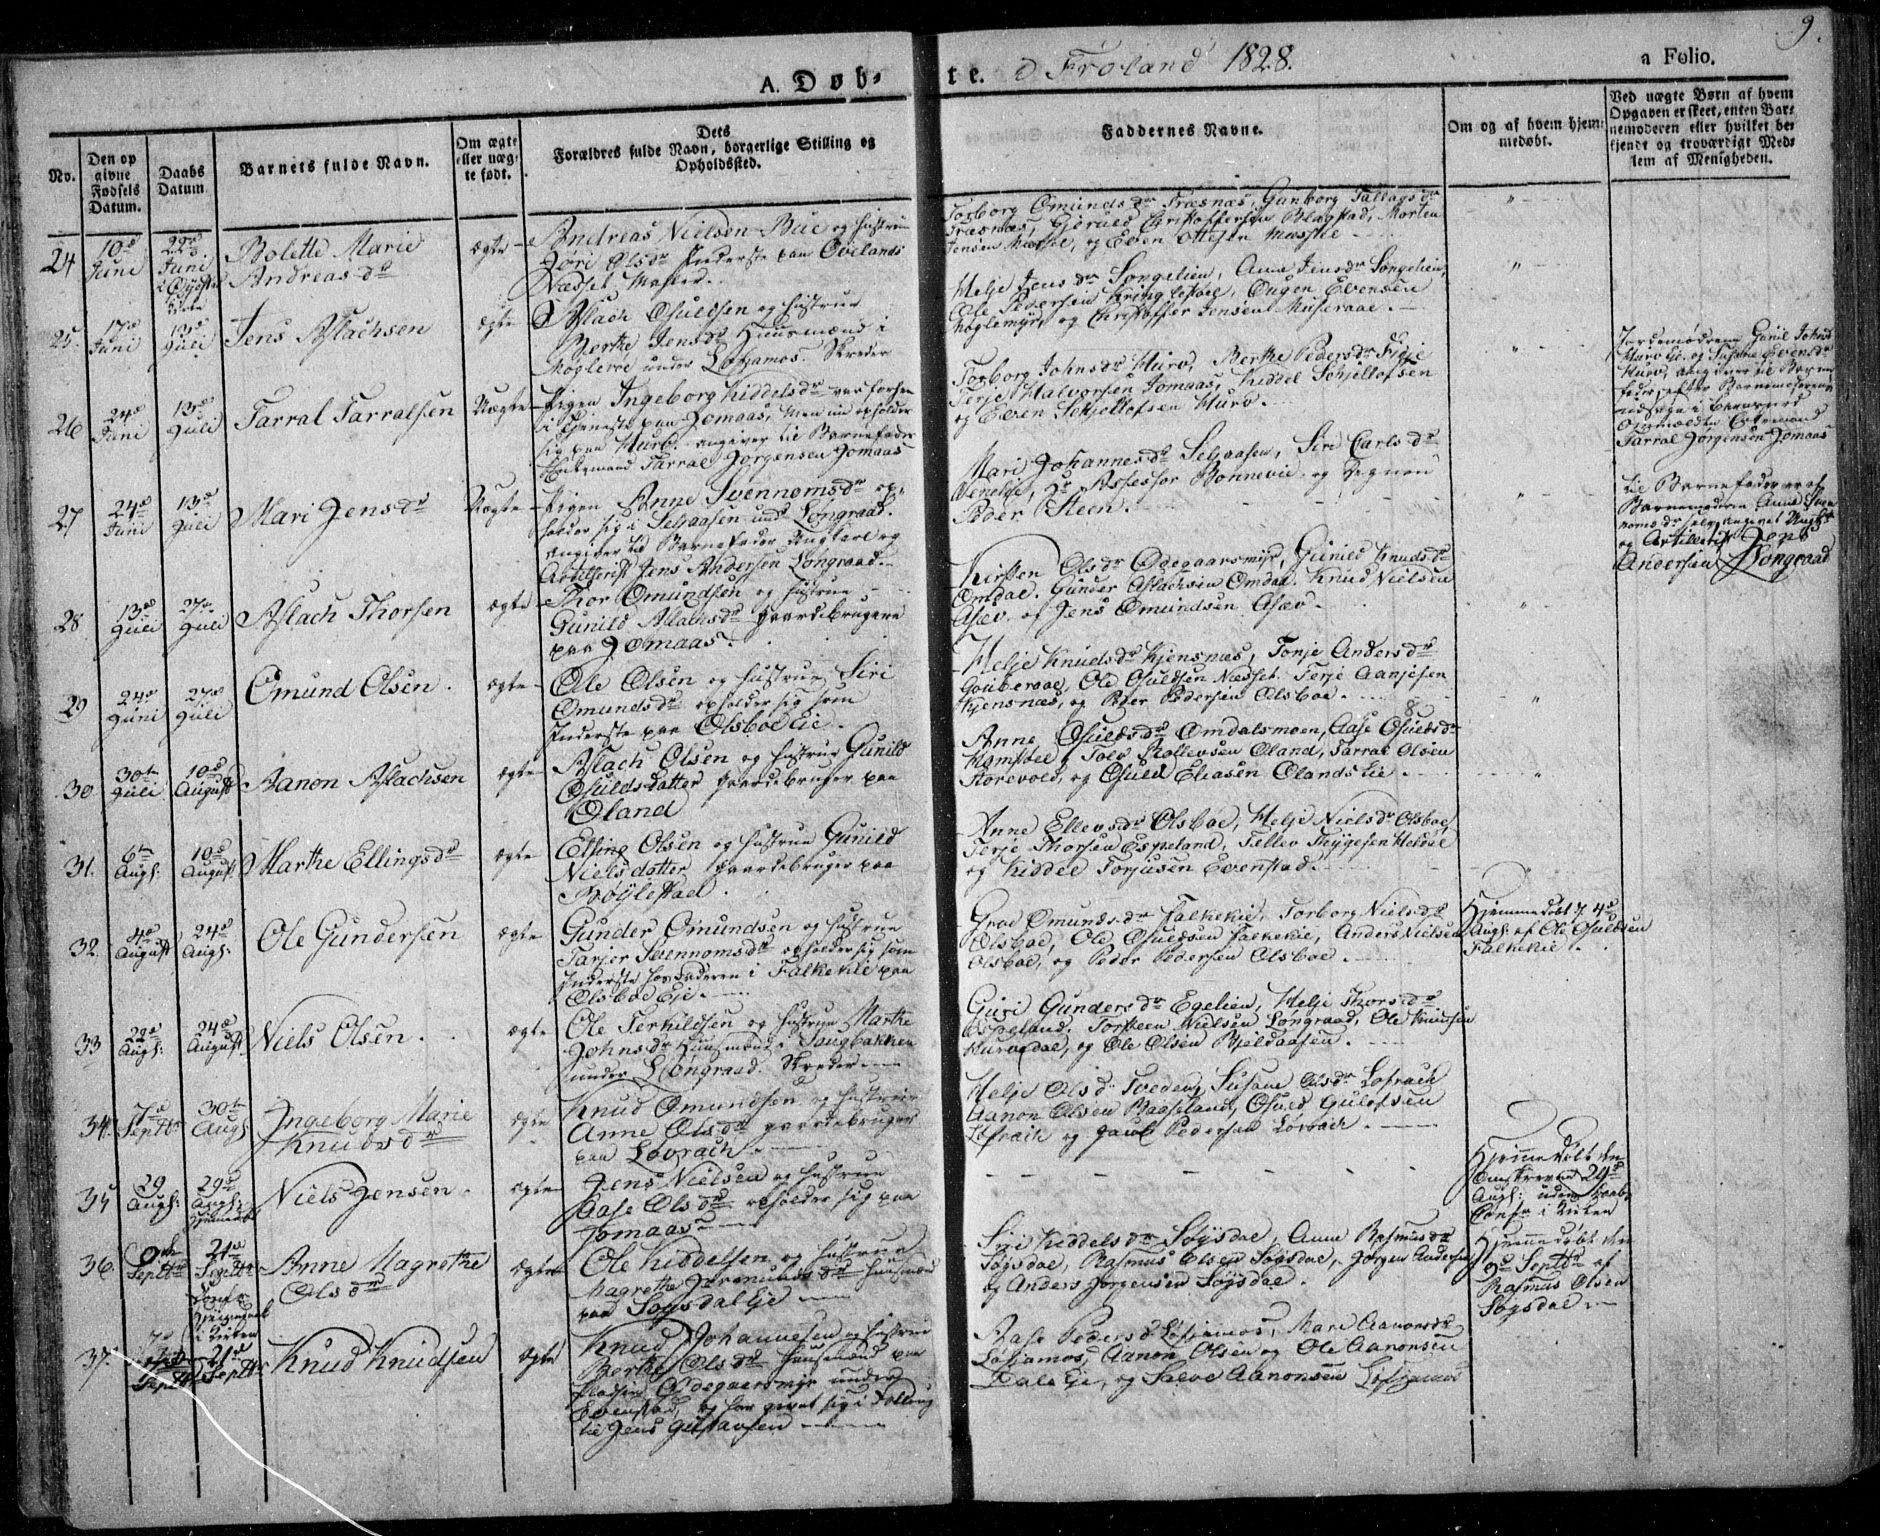 A. Døb-
te. i Froland 1828.
a Folio.
9.
No.
Den op
givne
Fødsels
Datum.
Daabs
Datum
Barnets fulde Navn.
Om ægte
eller uæg-
te født.
Dets
Forældres fulde Navn, borgerlige Stilling og
Opholdssted.
Faddernes Navne.
Om og af hvem hjem-
medøbt.
Ved uægte Børn af hvem
Opgaven er skeet, enten Bar-
nemoderen eller hvilket be-
kjendt og troværdigt Med-
lem af Menigheden.
24
10de
Juni
22de
Juni
Bolette Marie
Andreasdr
ægte
Andreas Nielsen Bue og Hustrue
Jøri Olsdr Inderste paa Øvelands
Nædset
Torborg Omundsdr Træsnæs, Gunborg Tallagsdr
Træsnæs, Christoffersen Blagstad, Morten
Jensen og Even Ottesen
25
17de
Juni
13de
Juli
Jens Aslachsen
ægte
Aslach Osuldsen og Hustrue
Berthe Jensdr Huusmænd i
under Løfjamos. Skreder
Helje Jensdr Songelien, Anne Jensdr Songelien,
Ole Pedersen Engen Evensen
og Christoffer Jensen
26
24de
Juni
13de
Juli
Tarral Tarralsen
Uægte
Pigen Ingeborg Kiddelsdr var forhen
i Tjeneste paa Jomaas, men nu opholder
sig paa Hurv. angiver til Barnefader
Tarral Jørgensen Jomaas
Torborg Johnsdr Hurv, Berthe Pedersdr
Terje Halvorsen Jomaas, Kiddel Schjellofsen
og Even Schjellofsen Hurv.
Jordemødrene Gunil Johnsdr
og Susanne Evensdr
Hurv, angivere til Barne-
fader, efter Barnemoderens
udsagn
Tarral Jørgensen Jomaas
27
24de
Juni
13de
Juli
Mari Jensdr
Uægte
Pigen Anne Svennomsdr op-
holder sig i Selaasen und Løngraad.
angiver til Barnefader Ungkarl og
Artillerist Jens Andersen Løngraad.
Mari Johannesdr Selaasen, Siri Carlsdr
Assessor Bonnevie og Degnen
Peder Steen.
til Barnefader er af
Barnemoderen Anne Sven-
nomsdr selv angivet Ungk
og Artillerist Jens
Andersen Longraad
28
13de
Juli
27de
Juli
Aslach Thorsen
ægte
Thor Omundsen og Hustrue
Gunild Aslachsdr Gaardebrugere
paa Jomaas.
Kirsten Olsdr Ødegaarsmyr, Gunild Knudsdr
Omdal. Gunder Aslachsen Omdal. Knud Nielsen
Asev, og Jens Omundsen Asev.
29
24de
Juni
27de
Juli
Omund Olsen.
ægte
Ole Olsen og Hustrue Siri
Omundsdr opholder sig som
Inderste paa Olsboe Eie.
Helje Knudsdr Kjensnæs, Tonje Andersdr
Ole Osuldsen Nædset. Terje Aanjesen
Kjensnæs, og Peder Pedersen Olsboe.
30
30te
Juli
10de
August
Aanon Aslachsen
ægte
Aslach Olsen og Hustrue Gunild
Osulds datter Gaardebruger paa
Oland
Anne Osuldsdr Omdalsmoen, Aase Osuldsdr
Tolv Stollevsen Oland, Tarral Olsen
Storevold, og Osuld Eliasen Olands Eie.
31.
6te
Augs:
10de
August
Marthe Ellingsdr
ægte
Elling Olsen og Hustrue Gunild
Nielsdatter Gaardebruger paa
Bøylestad.
Anne Ellevsdr Olsboe, Helje Nielsdr Olsboe,
Terje Thorsen Espeland, Tellev Thygesen
og Kiddel Torjusen Evenstad.
32.
4de
August
24de
Augs:
Ole Gundersen
ægte
Gunder Omundsen og Hustrue
Tarjer Svennomsdr opholder sig som
Inderste hos Faderen i Falkekie paa
Olsboe Eje.
Omundsdr Falkekie, Torborg Nielsdr
Olsboe, Ole Osuldsen Falkekie, Anders Nielsen
Olsboe, og Peder Pedersen Olsboe.
Hjemmedøbt 4de
Augs: af Ole Osuldsen
Falkekie
33
22de
Augs:
24de
August
Niels Olsen.
ægte
Ole Terkildsen og Hustrue Marthe
Johnsdr Huusmænd i Saugbakken
under Løngraad. Skreder
Guri Gundersdr Egelien, Helje Thorsdr
Espeland. Torsteen Nielsen Løngraad, Ole Knudsen
Hurvedal, og Ole Olsen
34.
7de
Septbr
30te
Augs
Ingeborg Marie
Knudsdr
ægte
Knud Omundsen og Hustrue
Anne Olsdr Gaardebruger
paa Lovrach.
Helje Olsdr Tveden, Susane Olsdr Lofrach
Aanon Olsen Baaseland, Osuld Gulofsen
Lofrach og Pedersen Lovrach.
35
29
Augs:
29de
Augs:
Hjemmedøbt
Niels Jensen.
ægte
Jens Nielsen og Hustrue
Aase Olsdr opholder sig paa
Jomaas
Hjemmedøbt den
29de
Augs: uden Daabs
Conf. i Kirken
36.
9de
Septbr
21de
Septbr
Conf:
i Kirken
Anne Magrethe
Olsdr
ægte
Ole Kiddelsen og Hustrue
Magrethe Huusmænd
paa Søgsdal Eje
Siri Kiddelsdr Søgsdal, Anne Rasmusdr
Søgsdal, Rasmus Olsen Søgsdal, Jørgen Andersen
og Anders Jørgensen Søgsdal.
Hjemmedøbt den
9de Septbr af
Rasmus Olsen
Søgsdal
37.
7de
Septbr
21de
Septbr
Knud Knudsen
ægte
Knud Johannesen og Hustrue
Berthe Olsdr Huusmænd paa
Pladsen Ødegaarsmyr under
Evenstad, og har givet sig i
til Jens Gustavsen
Aase Pedersdr Løfjamos, Mari Aanonsdr
Løfjamos, Aanon Olsen og Ole Aanonsen
Eje, og Salve Aanonsen Løfjamos